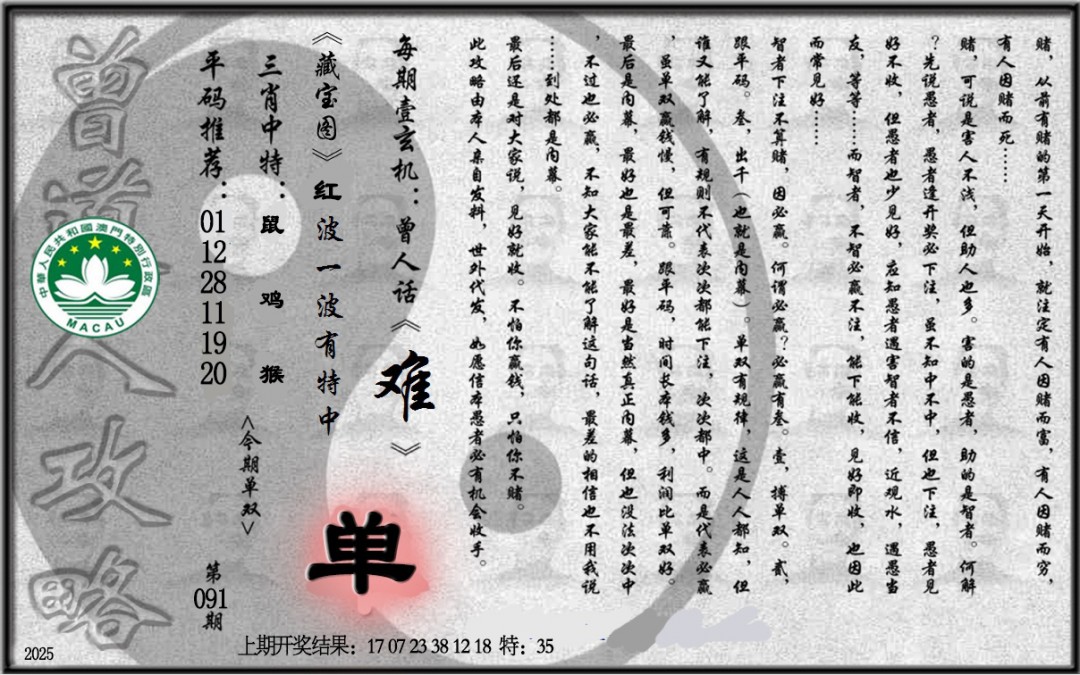 赌，从前有赌的第一天开始，就注定有人因赌而富，有人因赌而穷，
有人因赌而死……
赌，可说是害人不浅，但助人也多。害的是愚者，助的是智者。何解
？先说愚者，愚者逢开奖必下注，虽不知中不中，但也下注，愚者见
好不收，但愚者也少见好，应知愚者遇害智者不信，近观水，遇愚当
友，等等……而智者，不智必赢不注，能下能收，见好即收，也因此
而常见好……
智者下注不算赌，因必赢。何谓必赢？必赢有叁。壹，搏单双。贰，
跟平码。叁，出千（也就是内幕）。单双有规律，这是人人都知，但
谁又能了解，有规则不代表次次都能下注，次次都中。而是代表必赢
，虽单双赢钱慢，但可靠。跟平码，时间长本钱多，利润比单双好。
最后是内幕，最好也是最差，最好是当然真正内幕，但也没法次次中
，不过也必赢，不知大家能不能了解这句话，最差的相信也不用我说
……到处都是内幕。
最后还是对大家说，见好就收。不怕你赢钱，只怕你不赌。
此攻略由本人亲自发料，世外代发，如愿信本愚者必有机会收手。
每期壹玄机：曾人话《难》
《藏宝图》红波一波有特中
单
三肖中特：鼠 鸡 猴
<今期单双>
平码推荐：01 12 28 11 19 20
第091期
曾道人攻略
中華人民共和國澳門特別行政區
MACAU
上期开奖结果：17 07 23 38 12 18 特：35
2025